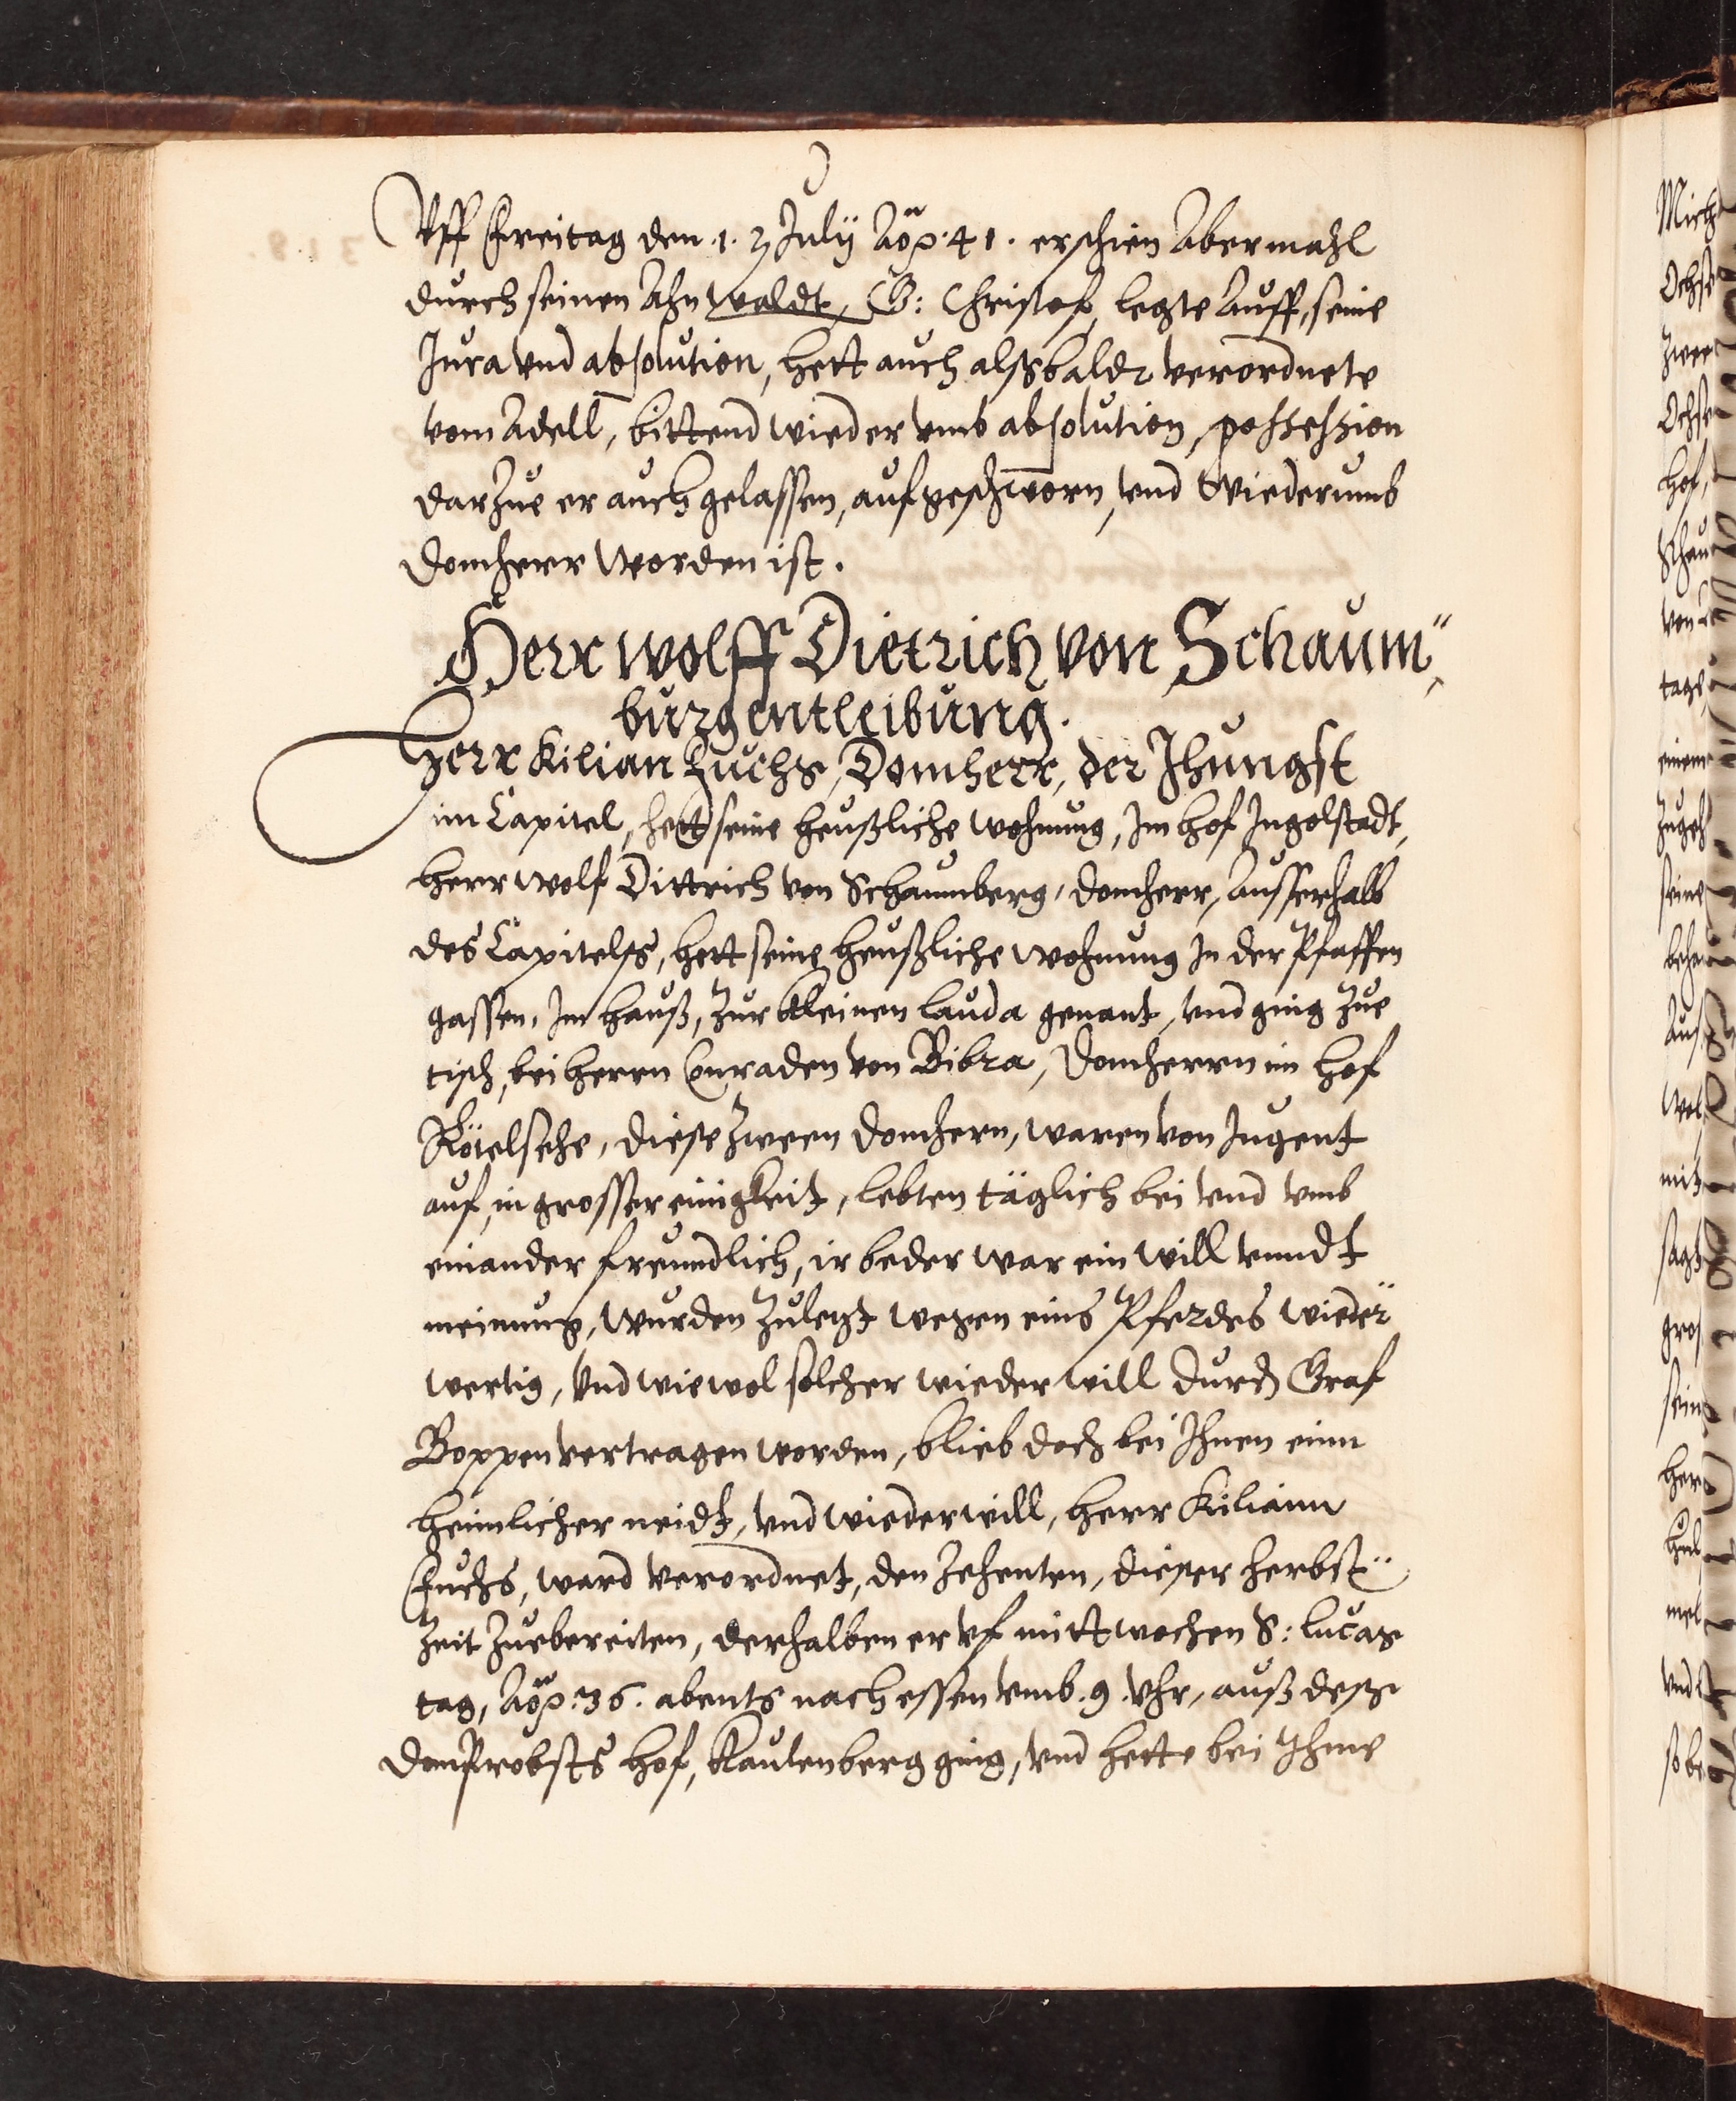 Vff Freitag den .1. Julÿ Aõ p. 41. erschien Abermahl
durch seinen Ahnwaldt, G: Christof, legte Auff, seine
Jura vnd absolution, hett auch alßbaldt verordnete
vom Adell, bittend wieder vmb absolution, possession
darzue er auch gelassen, aufgeschworn, vnd Wiederumb
Domherr Worden ist.
Herr Wolff Dietrich von Schaum„
burg entleibung.
Herr Kilian Fuchs, Domherr, der Jhungst
im Capitel, hett seine heußliche wohnung, Im hof Ingolstadt,
herr Wolf Dittrich von Schaumberg, domherr, Ausserhalb
des Capitelß, hett seine heußliche wohnung In der Pfaffen
gassen, Im hauß, zur kleinen Lauda genant, vnd ging zue
tisch, bei herrn Conraden von Bibra, Domherrn im hof
Rötelsehe, diese zween domhern, waren von Jugent
auf, in grosser einigkeit, lebten täglich bei vnd vmb
einander freundlich, ir beder war ein will vnndt
meinung, wurden zuletzt wegen eins Pferdes wieder
wertig, Vnd wiewol solcher wieder will durch Graf
Boppen vertragen worden, blieb doch bei Ihnen einn
heimlicher neidt, vnd wiederwill, herr Kiliann
Fuchs, ward verordnet, den Zehenten, dieser herbst
Zeit zuebereiten, derhalben er vf mittwochen S: Lucas
tag, Aõ p. 36. abents nach essen vmb .9. Vhr, auß deß
domProbsts hof, Kaulenberg ging, vnd hette bei Ihme